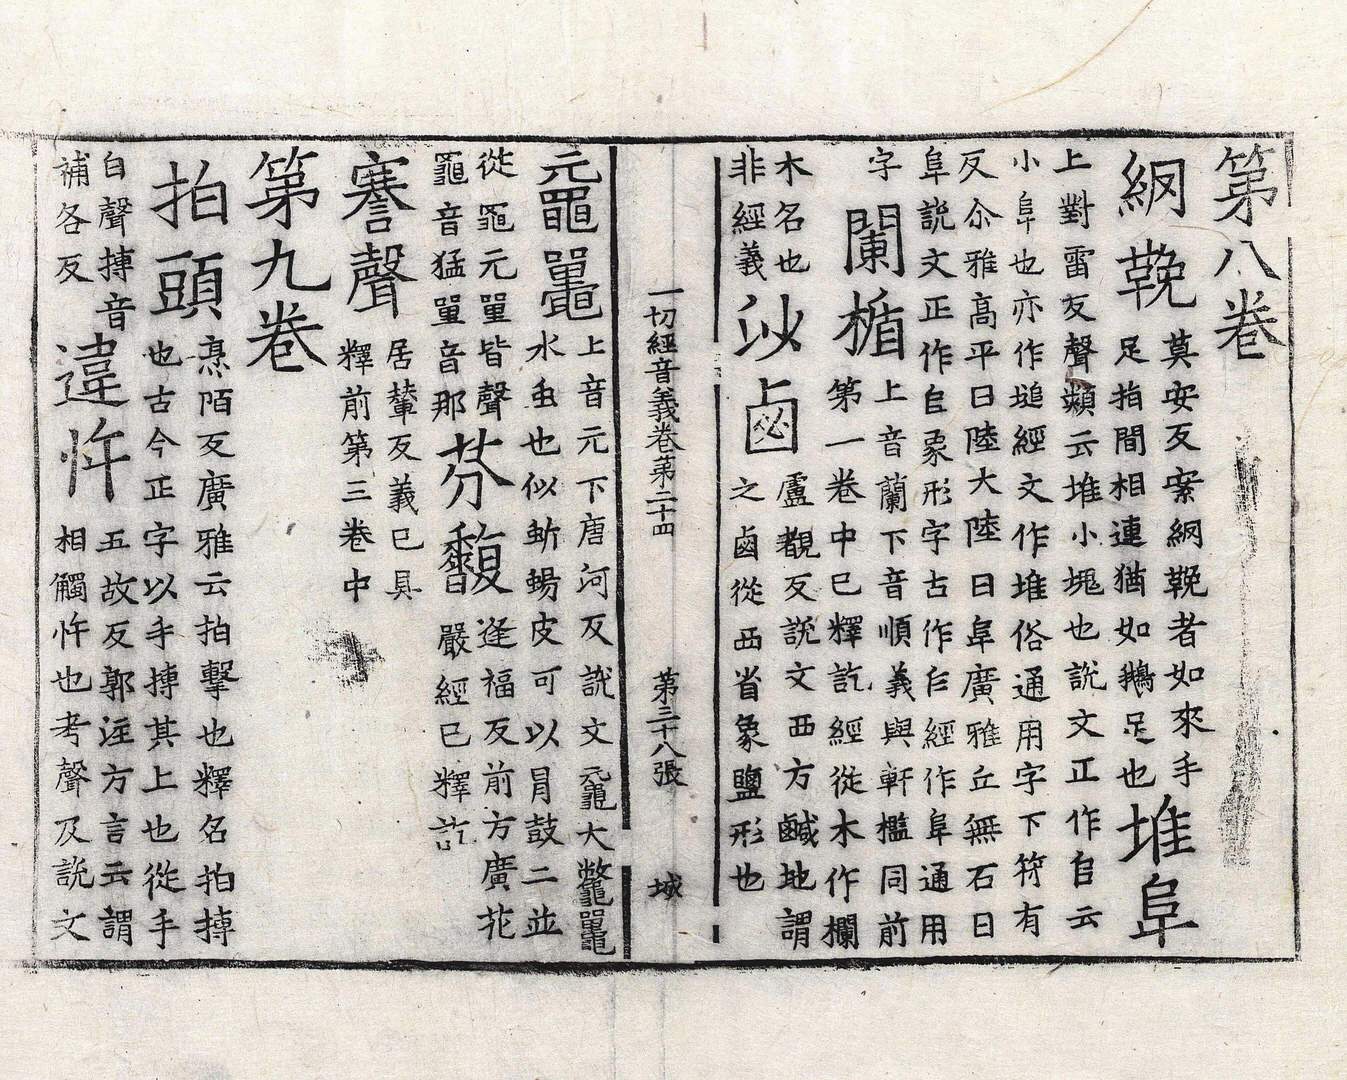 第八卷
網鞔
莫安反案網鞔者如來手
足指間相連猶如鵝足也
堆阜
上對雷反聲類云堆小塊也說文正作𠂤云
小阜也亦作塠經文作堆俗通用字下符有
反尒雅高平曰陸大陸曰阜廣雅丘無石曰
阜說文正作𠂤象形字古作𠂤經作阜通用
字
闌楯
上音蘭下音順義與軒檻同前
第一卷中已釋訖經從木作欄
木名也
非經義
沙鹵
盧覩反說文西方鹹地謂
之鹵從西省象鹽形也
一切經音義卷第二十四 第三十八張 城
黿鼉
上音元下唐河反說文黿大鼈鼉
水虫也似蜥蜴皮可以冐鼓二並
從黽元單皆聲
黽音猛單音那
芬馥
逢福反前方廣花
嚴經已釋訖
謇聲
居輦反義已具
釋前第三卷中
第九卷
拍頭
烹陌反廣雅云拍擊也釋名拍搏
也古今正字以手搏其上也從手
白聲搏音
補各反
違忤
五故反郭注方言云謂
相觸忤也考聲及說文